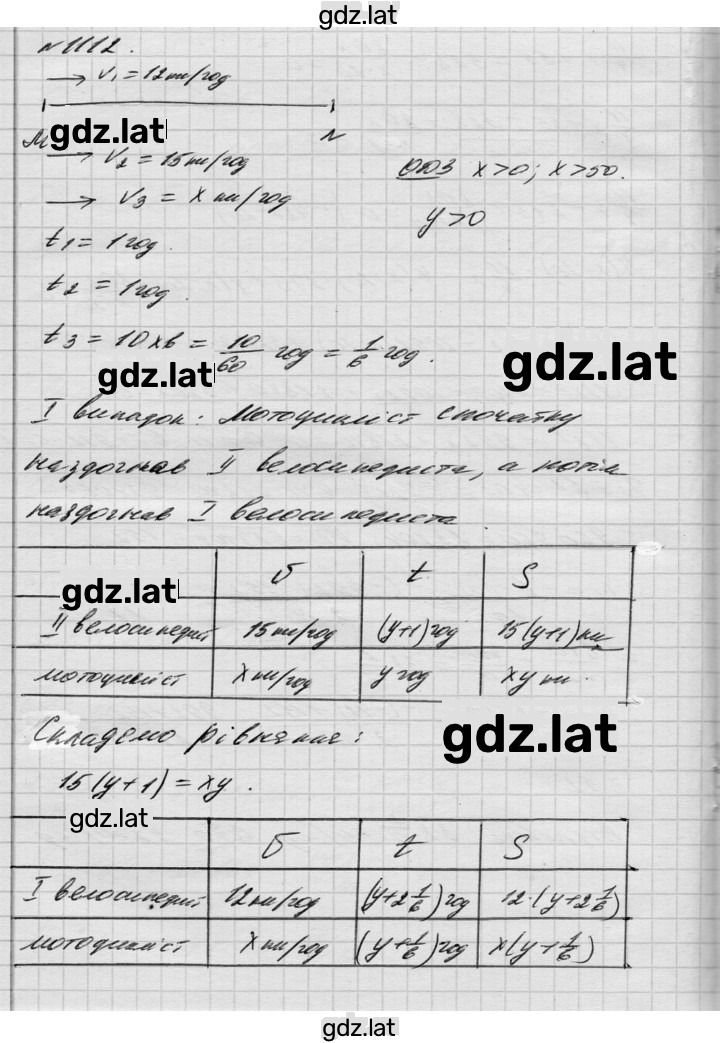 gdz.lat
№1112.
→ V₁ = 12 км/год
gdz.lat
M N
→ V₂ = 15 км/год
ОДЗ x>0; x>50.
→ V₃ = x км/год
y>0
t₁ = 1 год.
t₂ = 1 год.
t₃ = 10 хв = 10/60 год = 1/6 год.
gdz.lat
gdz.lat
I випадок: Мотоцикліст спочатку
наздогнав II велосипедиста, а потім
наздогнав I велосипедиста
gdz.lat
v t S
II велосипедист 15 км/год (y+1) год 15(y+1) км
мотоцикліст x км/год y год xy км.
Складемо рівняння:
gdz.lat
15(y+1) = xy.
gdz.lat
v t S
I велосипедист 12 км/год (y+2 1/6) год 12·(y+2 1/6)
мотоцикліст x км/год (y+1/6) год x(y+1/6)
gdz.lat